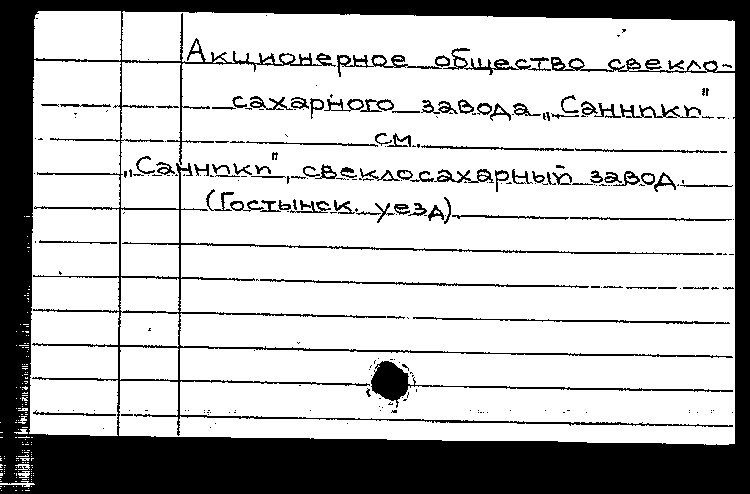 Акционерное общество свекло-
сахарного завода „Санники"
см.
„Санники", свеклосахарный завод.
(Гостынск. уезд).